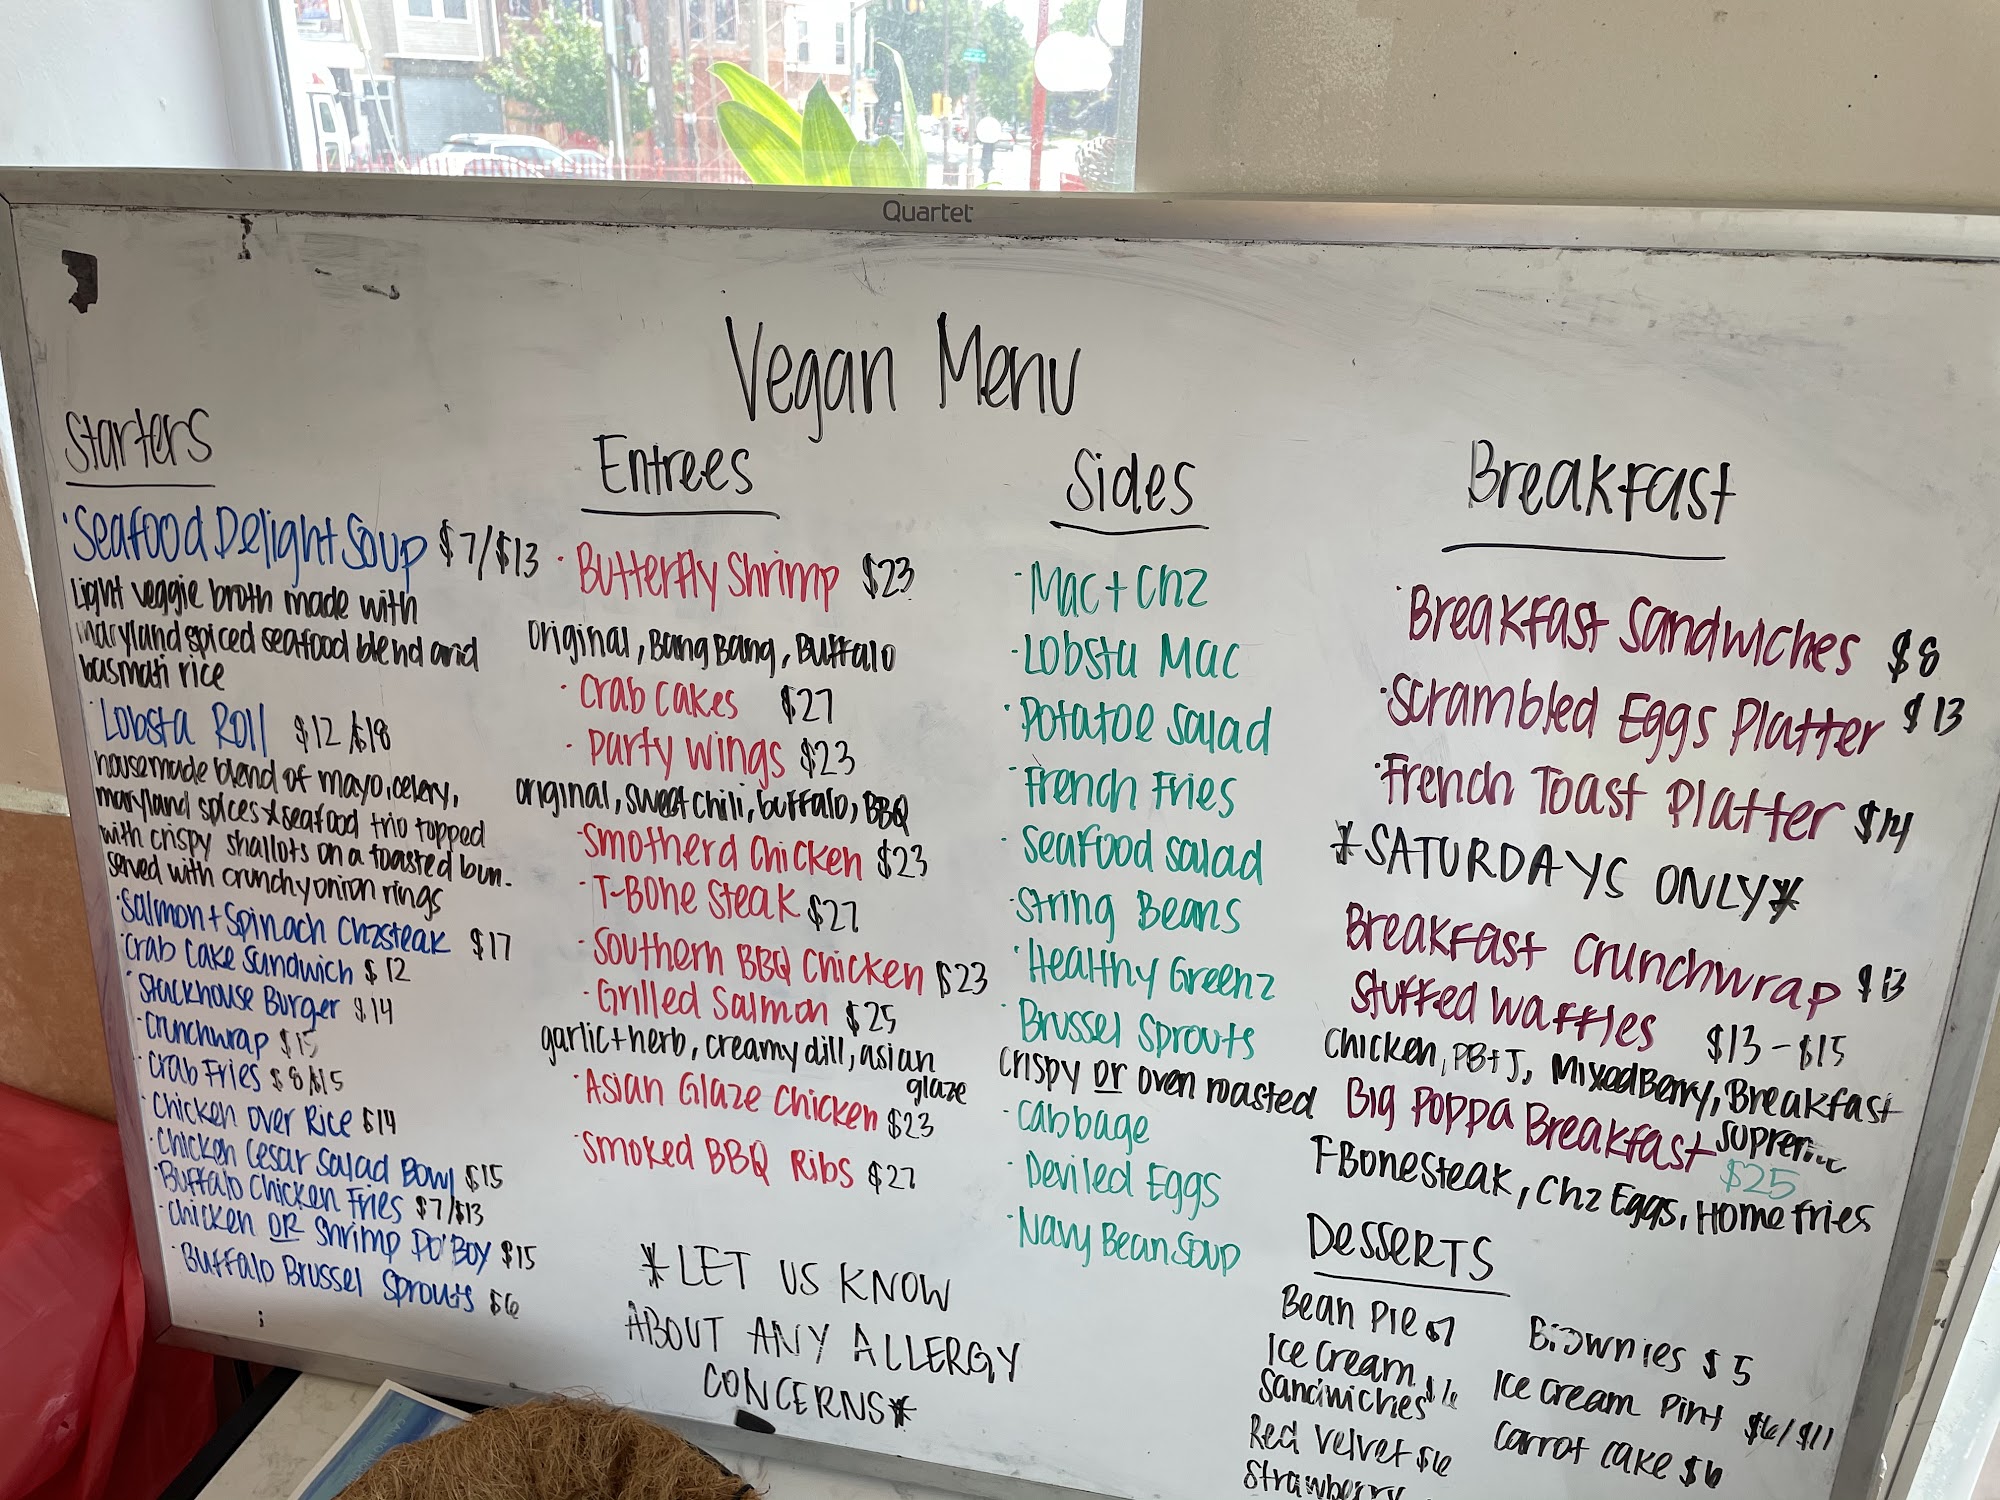 Quartet
Vegan Menu
Starters
·Seafood Delight Soup $7/$13
Light veggie broth made with
maryland spiced seafood blend and
basmati rice
·Lobsta Roll $12/$18
housemade blend of mayo, celery,
maryland spices & seafood trio topped
with crispy shallots on a toasted bun.
served with crunchy onion rings
·Salmon + Spinach Chzsteak $17
·Crab Cake Sandwich $12
·Stackhouse Burger $14
·Crunchwrap $15
·Crab Fries $8/$15
·Chicken Over Rice $14
·Chicken Cesar Salad Bowl $15
·Buffalo Chicken Fries $7/$13
·Chicken OR Shrimp Po'Boy $15
·Buffalo Brussel Sprouts $6
Entrees
·Butterfly Shrimp $23
original, Bang Bang, Buffalo
·Crab Cakes $27
·Party Wings $23
original, sweet chili, buffalo, BBQ
·Smotherd Chicken $23
·T-Bone Steak $27
·Southern BBQ Chicken $23
·Grilled Salmon $25
garlic + herb, creamy dill, asian
glaze
·Asian Glaze Chicken $23
·Smoked BBQ Ribs $27
*LET US KNOW
ABOUT ANY ALLERGY
CONCERNS*
Sides
·Mac + Chz
·Lobsta Mac
·Potatoe Salad
·French Fries
·Seafood Salad
·String Beans
·Healthy Greenz
·Brussel Sprouts
crispy or oven roasted
·Cabbage
·Deviled Eggs
·Navy Bean Soup
Breakfast
·Breakfast Sandwiches $8
·Scrambled Eggs Platter $13
·French Toast Platter $14
*SATURDAYS ONLY*
Breakfast Crunchwrap $13
Stuffed Waffles $13-$15
Chicken, PB+J, MixedBerry, Breakfast
Supreme
Big Poppa Breakfast $25
T-Bone Steak, Chz Eggs, Home fries
Desserts
Bean Pie $7
Ice Cream
Sandwiches
Red Velvet $6
Strawberry
Brownies $5
Ice Cream Pint $6/$11
Carrot Cake $6